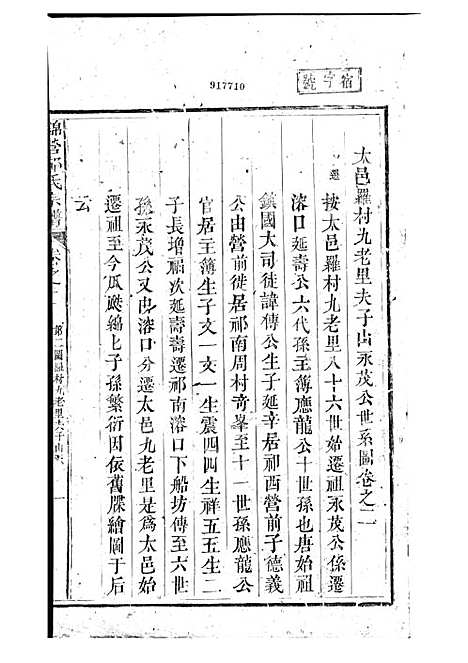 917710
宿字號
太邑羅村九老里夫子山永茂公世系圖卷之二
遷
按太邑羅村九老里八十六世始遷祖永茂公係遷
溶口延壽公六代孫主簿應龍公十世孫也唐始祖
鎮國大司徒諱傳公生子延辛居祁西營前子德義
公由營前徙居祁南周村奇峯至十一世孫應龍公
官居主簿生子文一文一生震四四生祥五五生二
子長增福次延壽壽遷祁南溶口下船坊傳至六世
孫永茂公又由溶口分遷太邑九老里是為太邑始
遷祖至今瓜瓞綿七子孫繁衍因依舊牒繪圖于后
云
氏宗譜
卷之二
第二圖羅村九老里夫子山